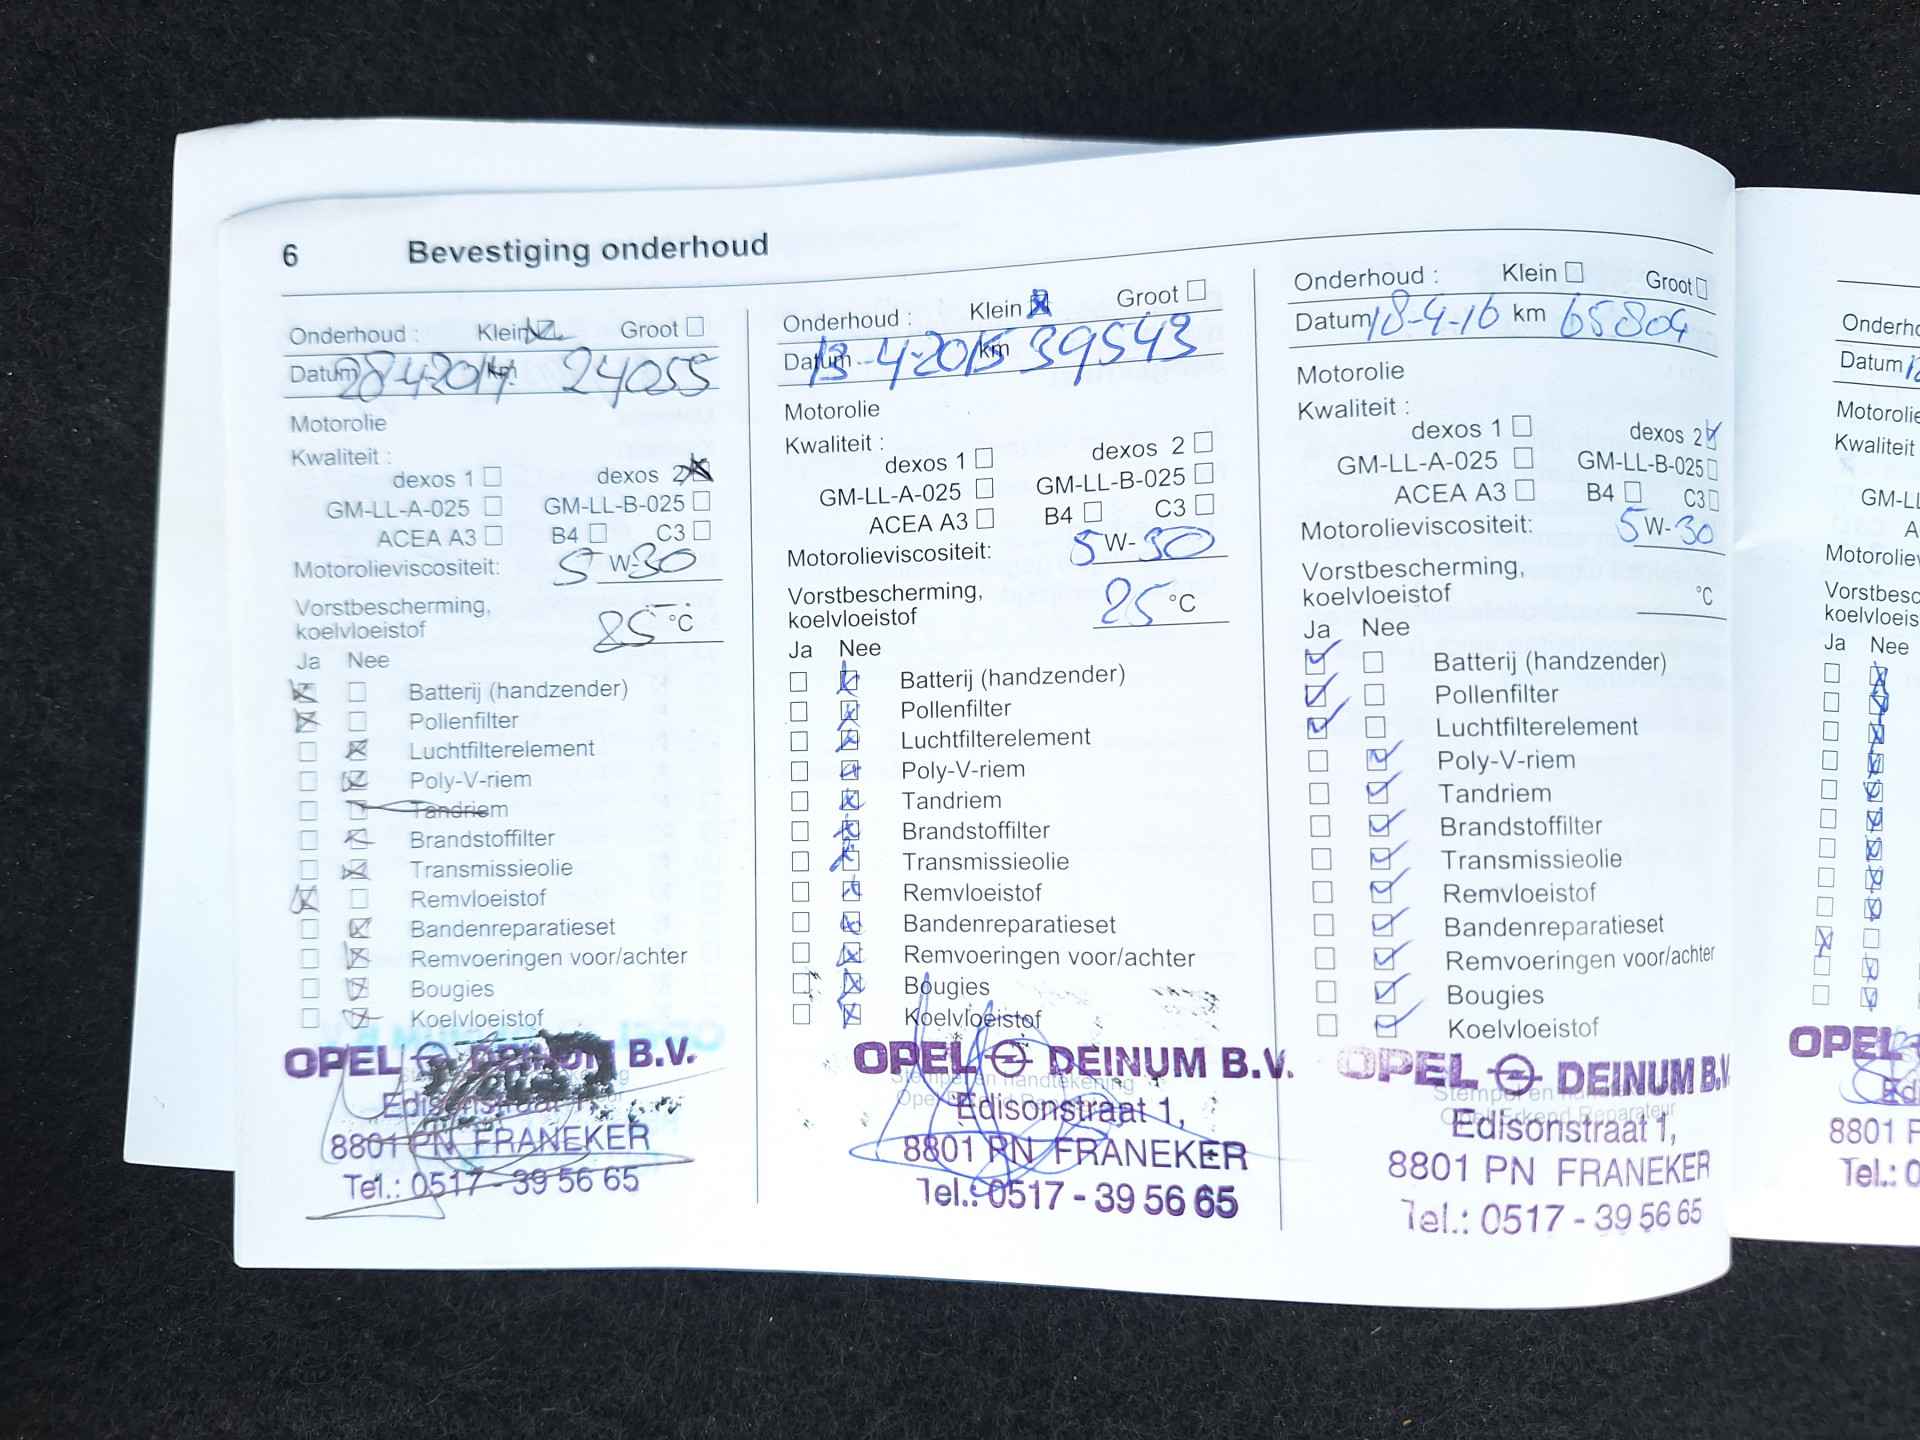 6 Bevestiging onderhoud
Onderhoud : Klein Groot
Datum 28-4-2014 km 24055
Motorolie
Kwaliteit :
dexos 1 dexos 2
GM-LL-A-025 GM-LL-B-025
ACEA A3 B4 C3
Motorolieviscositeit: 5 W-30
Vorstbescherming,
koelvloeistof 25 °C
Ja Nee
Batterij (handzender)
Pollenfilter
Luchtfilterelement
Poly-V-riem
Tandriem
Brandstoffilter
Transmissieolie
Remvloeistof
Bandenreparatieset
Remvoeringen voor/achter
Bougies
Koelvloeistof
OPEL DEINUM B.V.
Edisonstraat 1,
8801 PN FRANEKER
Tel.: 0517 - 39 56 65
Onderhoud : Klein Groot
Datum 13-4-2015 km 39543
Motorolie
Kwaliteit :
dexos 1 dexos 2
GM-LL-A-025 GM-LL-B-025
ACEA A3 B4 C3
Motorolieviscositeit: 5 W-30
Vorstbescherming,
koelvloeistof 25 °C
Ja Nee
Batterij (handzender)
Pollenfilter
Luchtfilterelement
Poly-V-riem
Tandriem
Brandstoffilter
Transmissieolie
Remvloeistof
Bandenreparatieset
Remvoeringen voor/achter
Bougies
Koelvloeistof
OPEL DEINUM B.V.
Stempel en handtekening
Edisonstraat 1,
8801 PN FRANEKER
Tel.: 0517 - 39 56 65
Onderhoud : Klein Groot
Datum 18-4-16 km 65804
Motorolie
Kwaliteit :
dexos 1 dexos 2
GM-LL-A-025 GM-LL-B-025
ACEA A3 B4 C3
Motorolieviscositeit: 5 W-30
Vorstbescherming,
koelvloeistof °C
Ja Nee
Batterij (handzender)
Pollenfilter
Luchtfilterelement
Poly-V-riem
Tandriem
Brandstoffilter
Transmissieolie
Remvloeistof
Bandenreparatieset
Remvoeringen voor/achter
Bougies
Koelvloeistof
OPEL DEINUM B.V.
Stempel en
Opel Erkend Reparateur
Edisonstraat 1,
8801 PN FRANEKER
Tel.: 0517 - 39 56 65
Onderho
Datum
Motorolie
Kwaliteit
GM-LL
A
Motorolievis
Vorstbesc
koelvloeis
Ja Nee
OPEL
Edi
8801 P
Tel.: 0